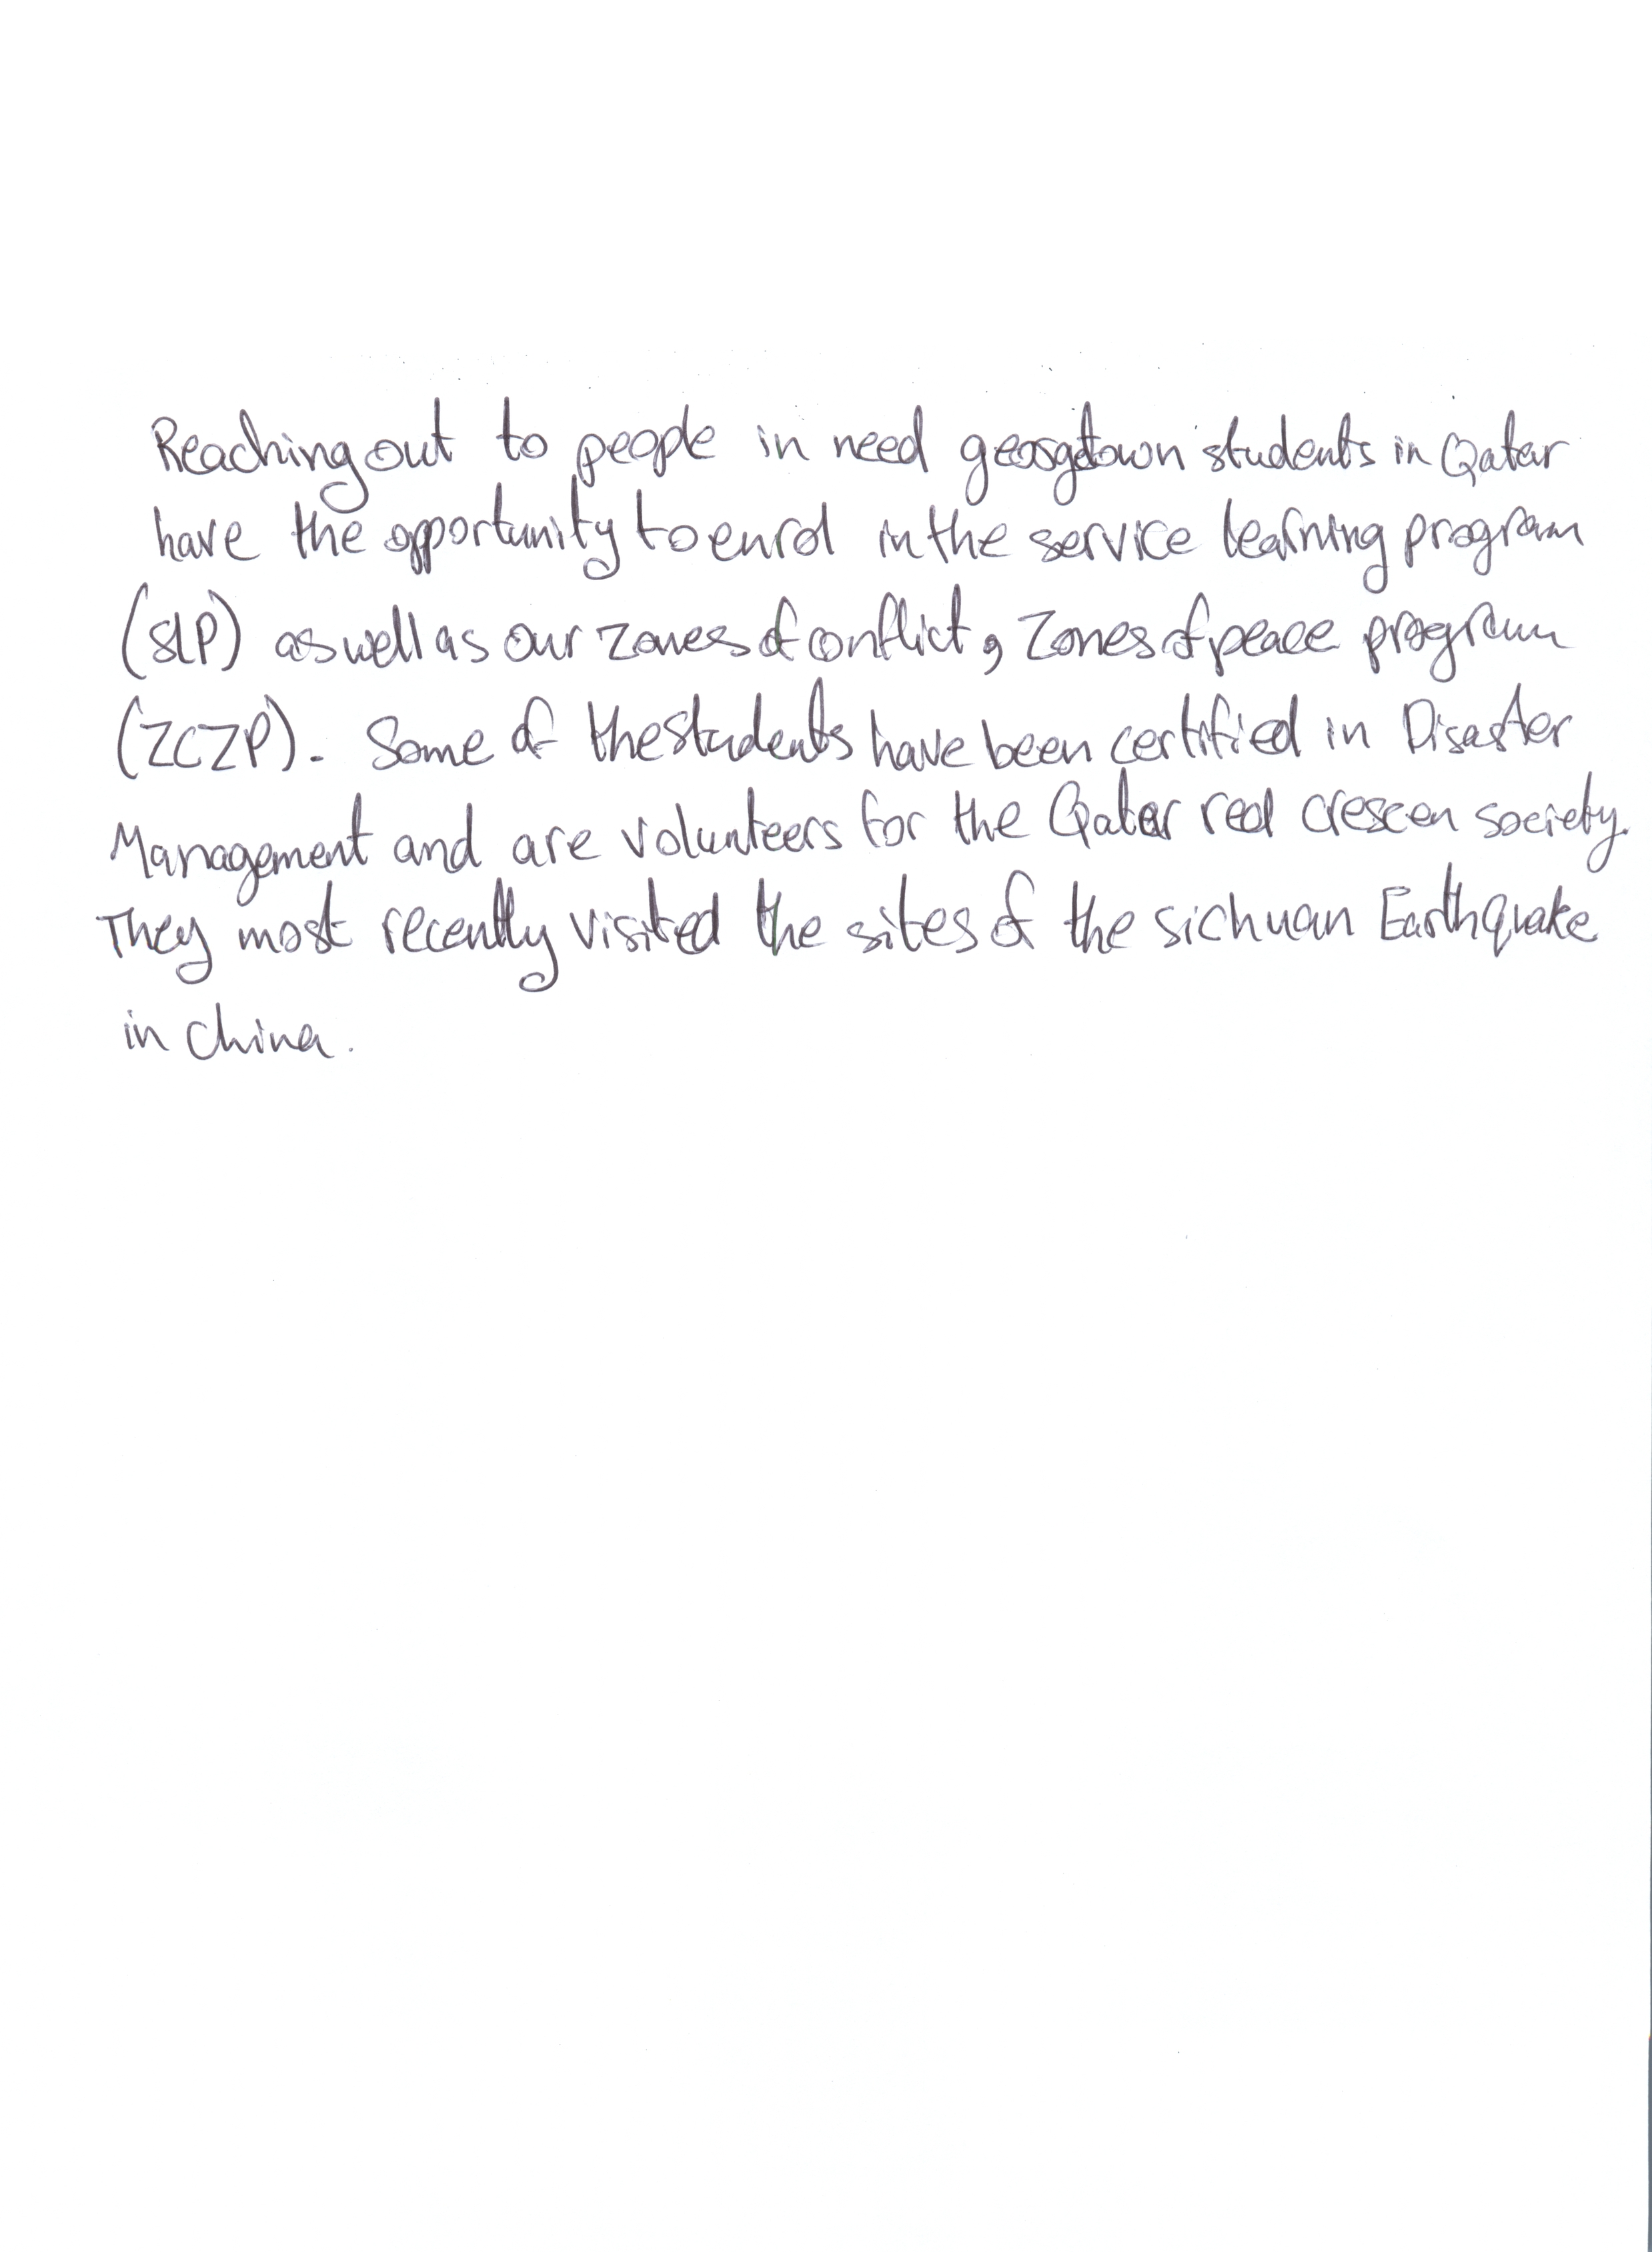 Reaching out to people in need georgetown students in Qatar
have the opportunity to enrol in the service learning program
(SLP) as well as our zones of conflict, Zones of peace program
(ZCZP). Some of the students have been certified in Disaster
Management and are volunteers for the Qatar red crescen society.
They most recently visited the sites of the sichuan Earthquake
in china.